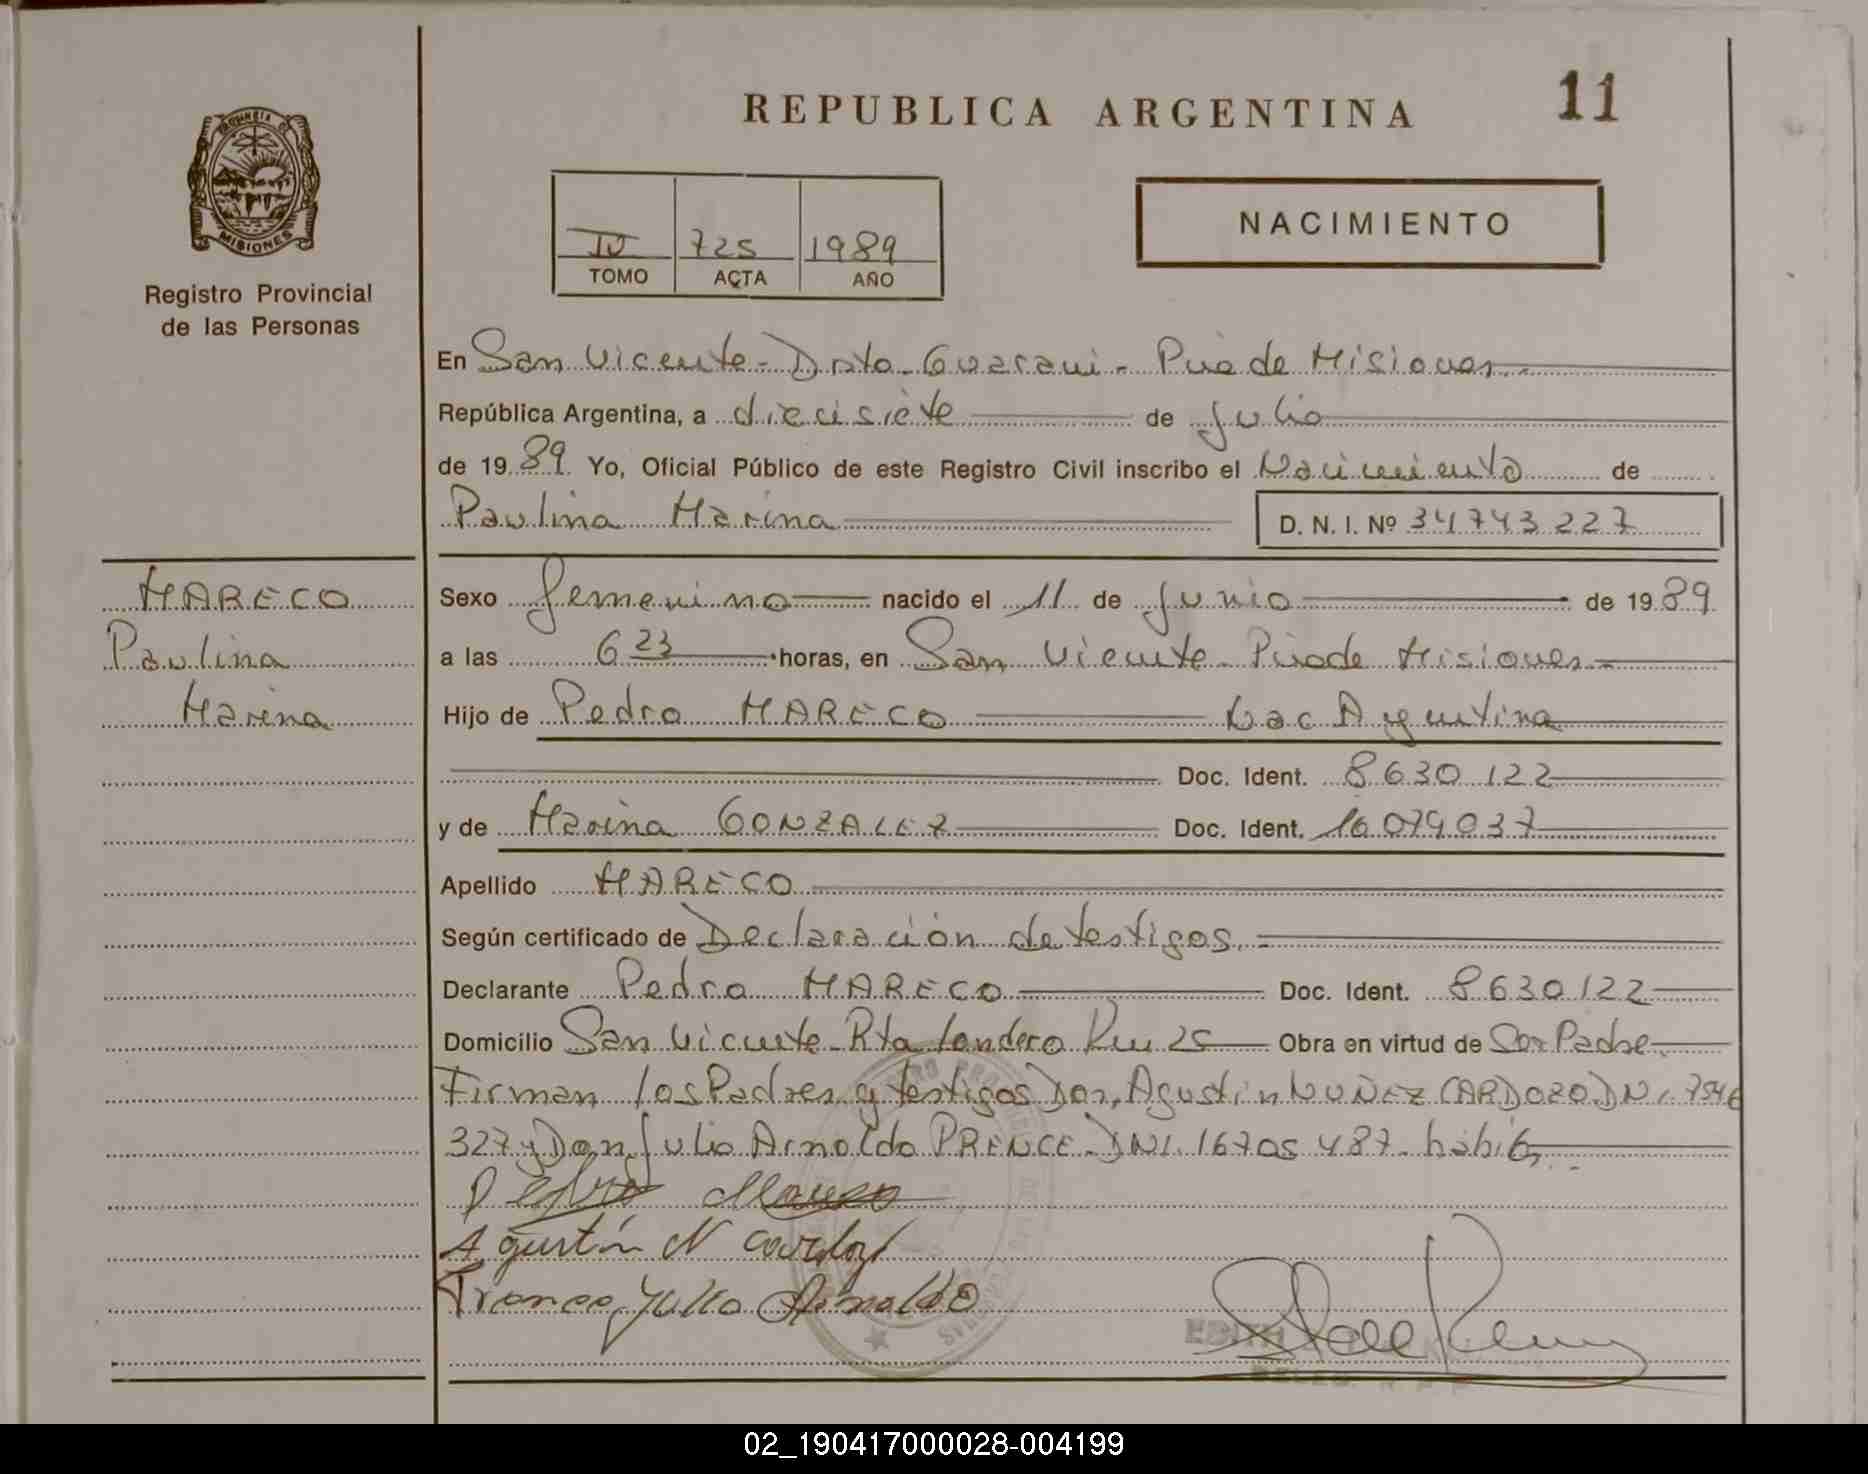 REPUBLICA ARGENTINA
11
PROVINCIA DE
MISIONES
Registro Provincial
de las Personas
IV 725 1989
TOMO ACTA AÑO
NACIMIENTO
En San Vicente - Dpto. Guarani - Pcia de Misiones
República Argentina, a diecisiete de Julio
de 1989 Yo, Oficial Público de este Registro Civil inscribo el Nacimiento de
Paulina Marina D. N. I. Nº 34743227
MARECO
Paulina
Marina
Sexo femenino nacido el 11 de Junio de 1989
a las 6 23 horas, en San Vicente - Pciade Misiones -
Hijo de Pedro MARECO Nac Argentina
Doc. Ident. 8630122
y de Marina GONZALEZ Doc. Ident. 16079037
Apellido MARECO
Según certificado de Declaración de testigos. -
Declarante Pedro MARECO Doc. Ident. 8630122
Domicilio San Vicente - Rta Londero Km 25 Obra en virtud de Ser Padre.
Firman los Padres y testigos Don, Agustin NUÑEZ CARDOZO DNI. 7546
327 y Don Julio Arnoldo PRENCE - DNI. 16705487 - habil,
Pedro Mareco
Agustín N Cardozo
Julio Arnoldo
EDITH
02_190417000028-004199